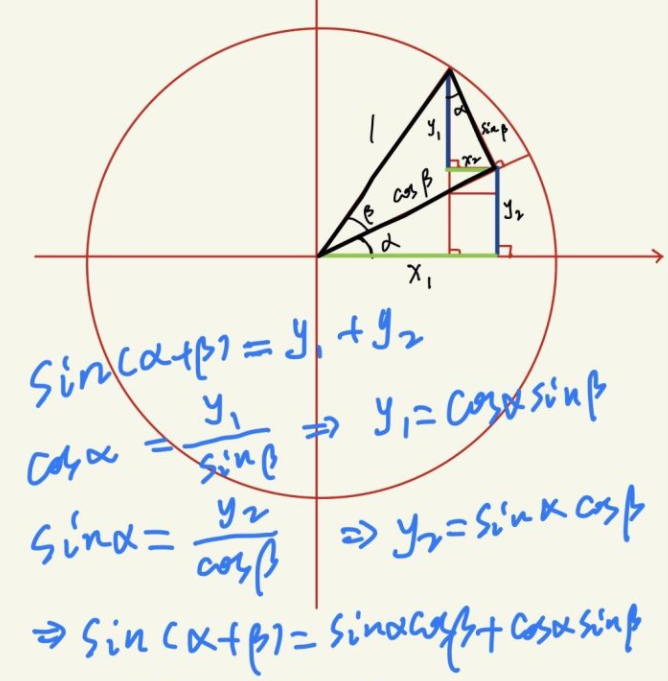 1
y₁
α
sinβ
x₂
cosβ
y₂
β
α
x₁
sin(α+β) = y₁ + y₂
cosα = y₁/sinβ ⇒ y₁ = cosα sinβ
sinα = y₂/cosβ ⇒ y₂ = sinα cosβ
⇒ sin(α+β) = sinαcosβ + cosαsinβ